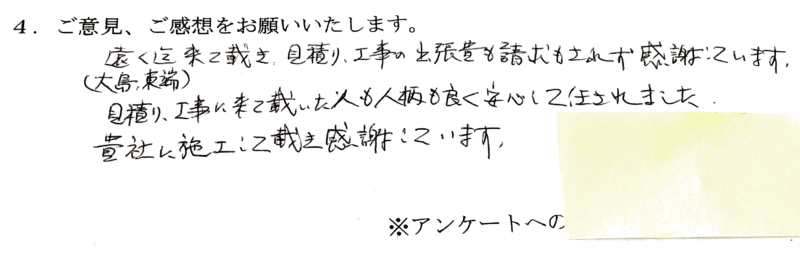 4．ご意見、ご感想をお願いいたします。
遠く迄来て載き、見積り、工事の出張費も請求もされず感謝しています。
(大島,東端)
見積り、工事に来て載いた人も人柄も良く安心して任されました.
貴社に施工して載き感謝しています。
※アンケートへの